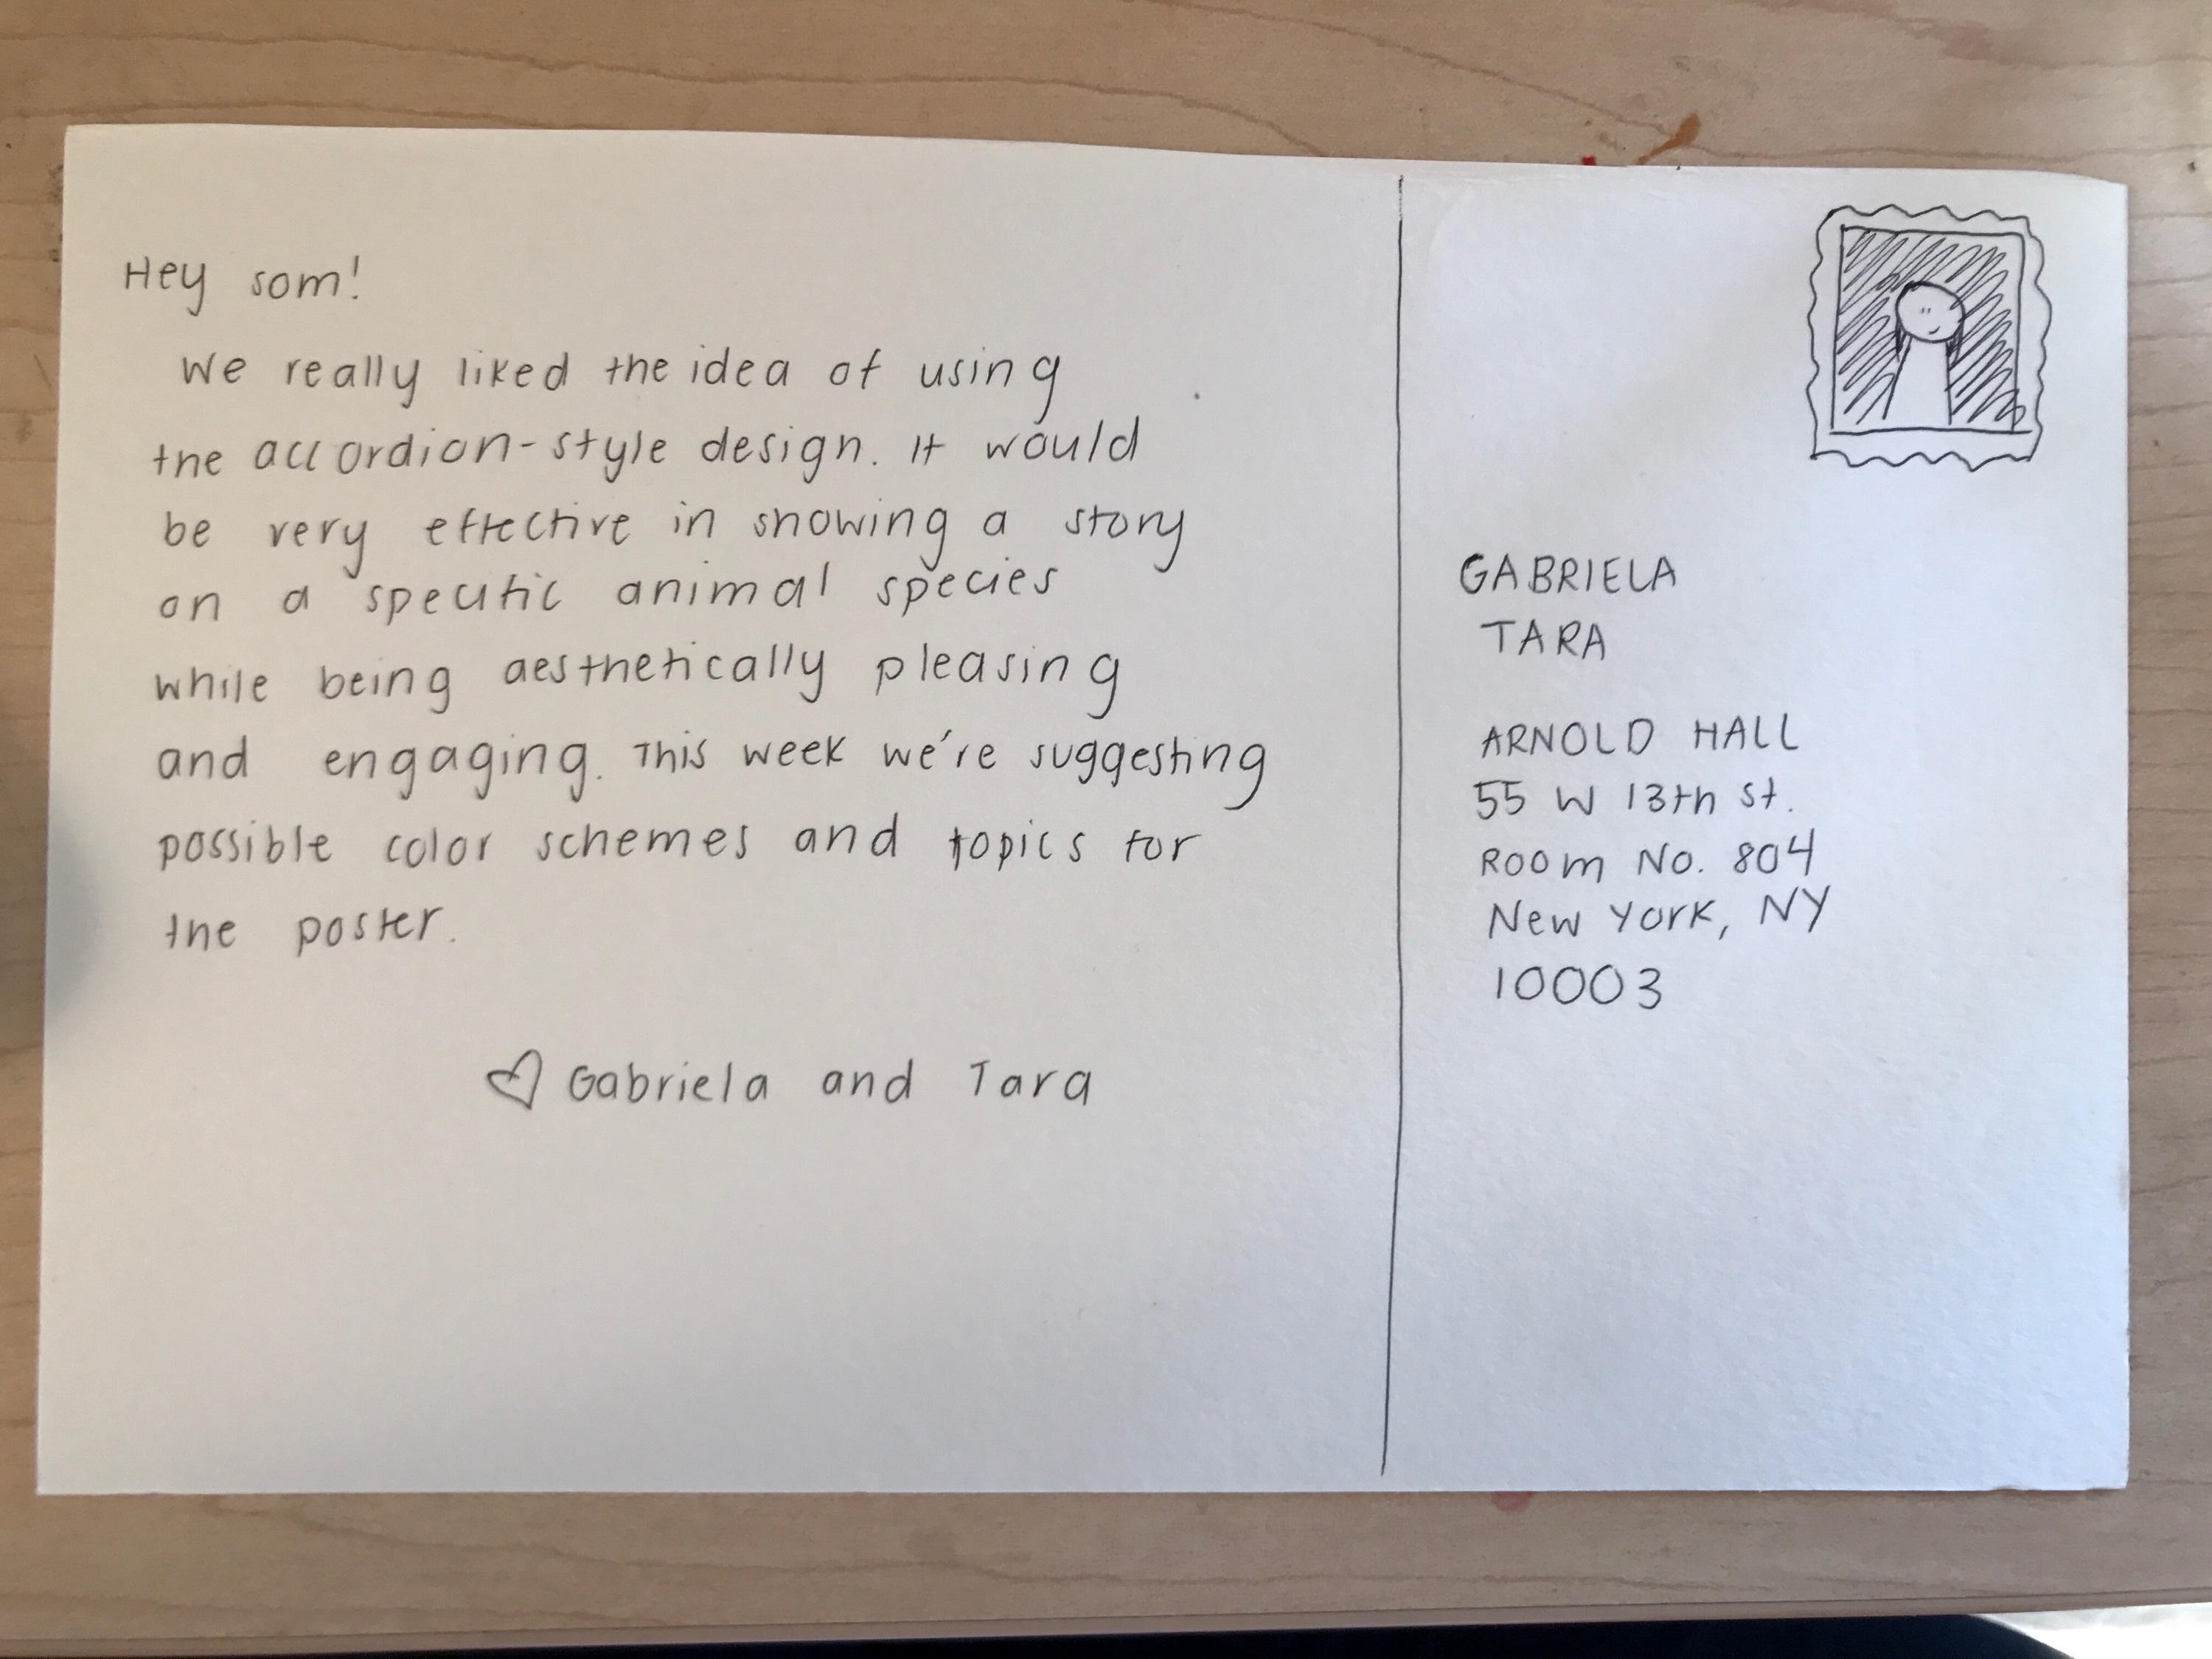 Hey som!
We really liked the idea of using
the accordion-style design. It would
be very effective in showing a story
on a specific animal species
while being aesthetically pleasing
and engaging. This week we're suggesting
possible color schemes and topics for
the poster.
♡ Gabriela and Tara
GABRIELA
TARA
ARNOLD HALL
55 W 13th st.
ROOM No. 804
New York, NY
10003